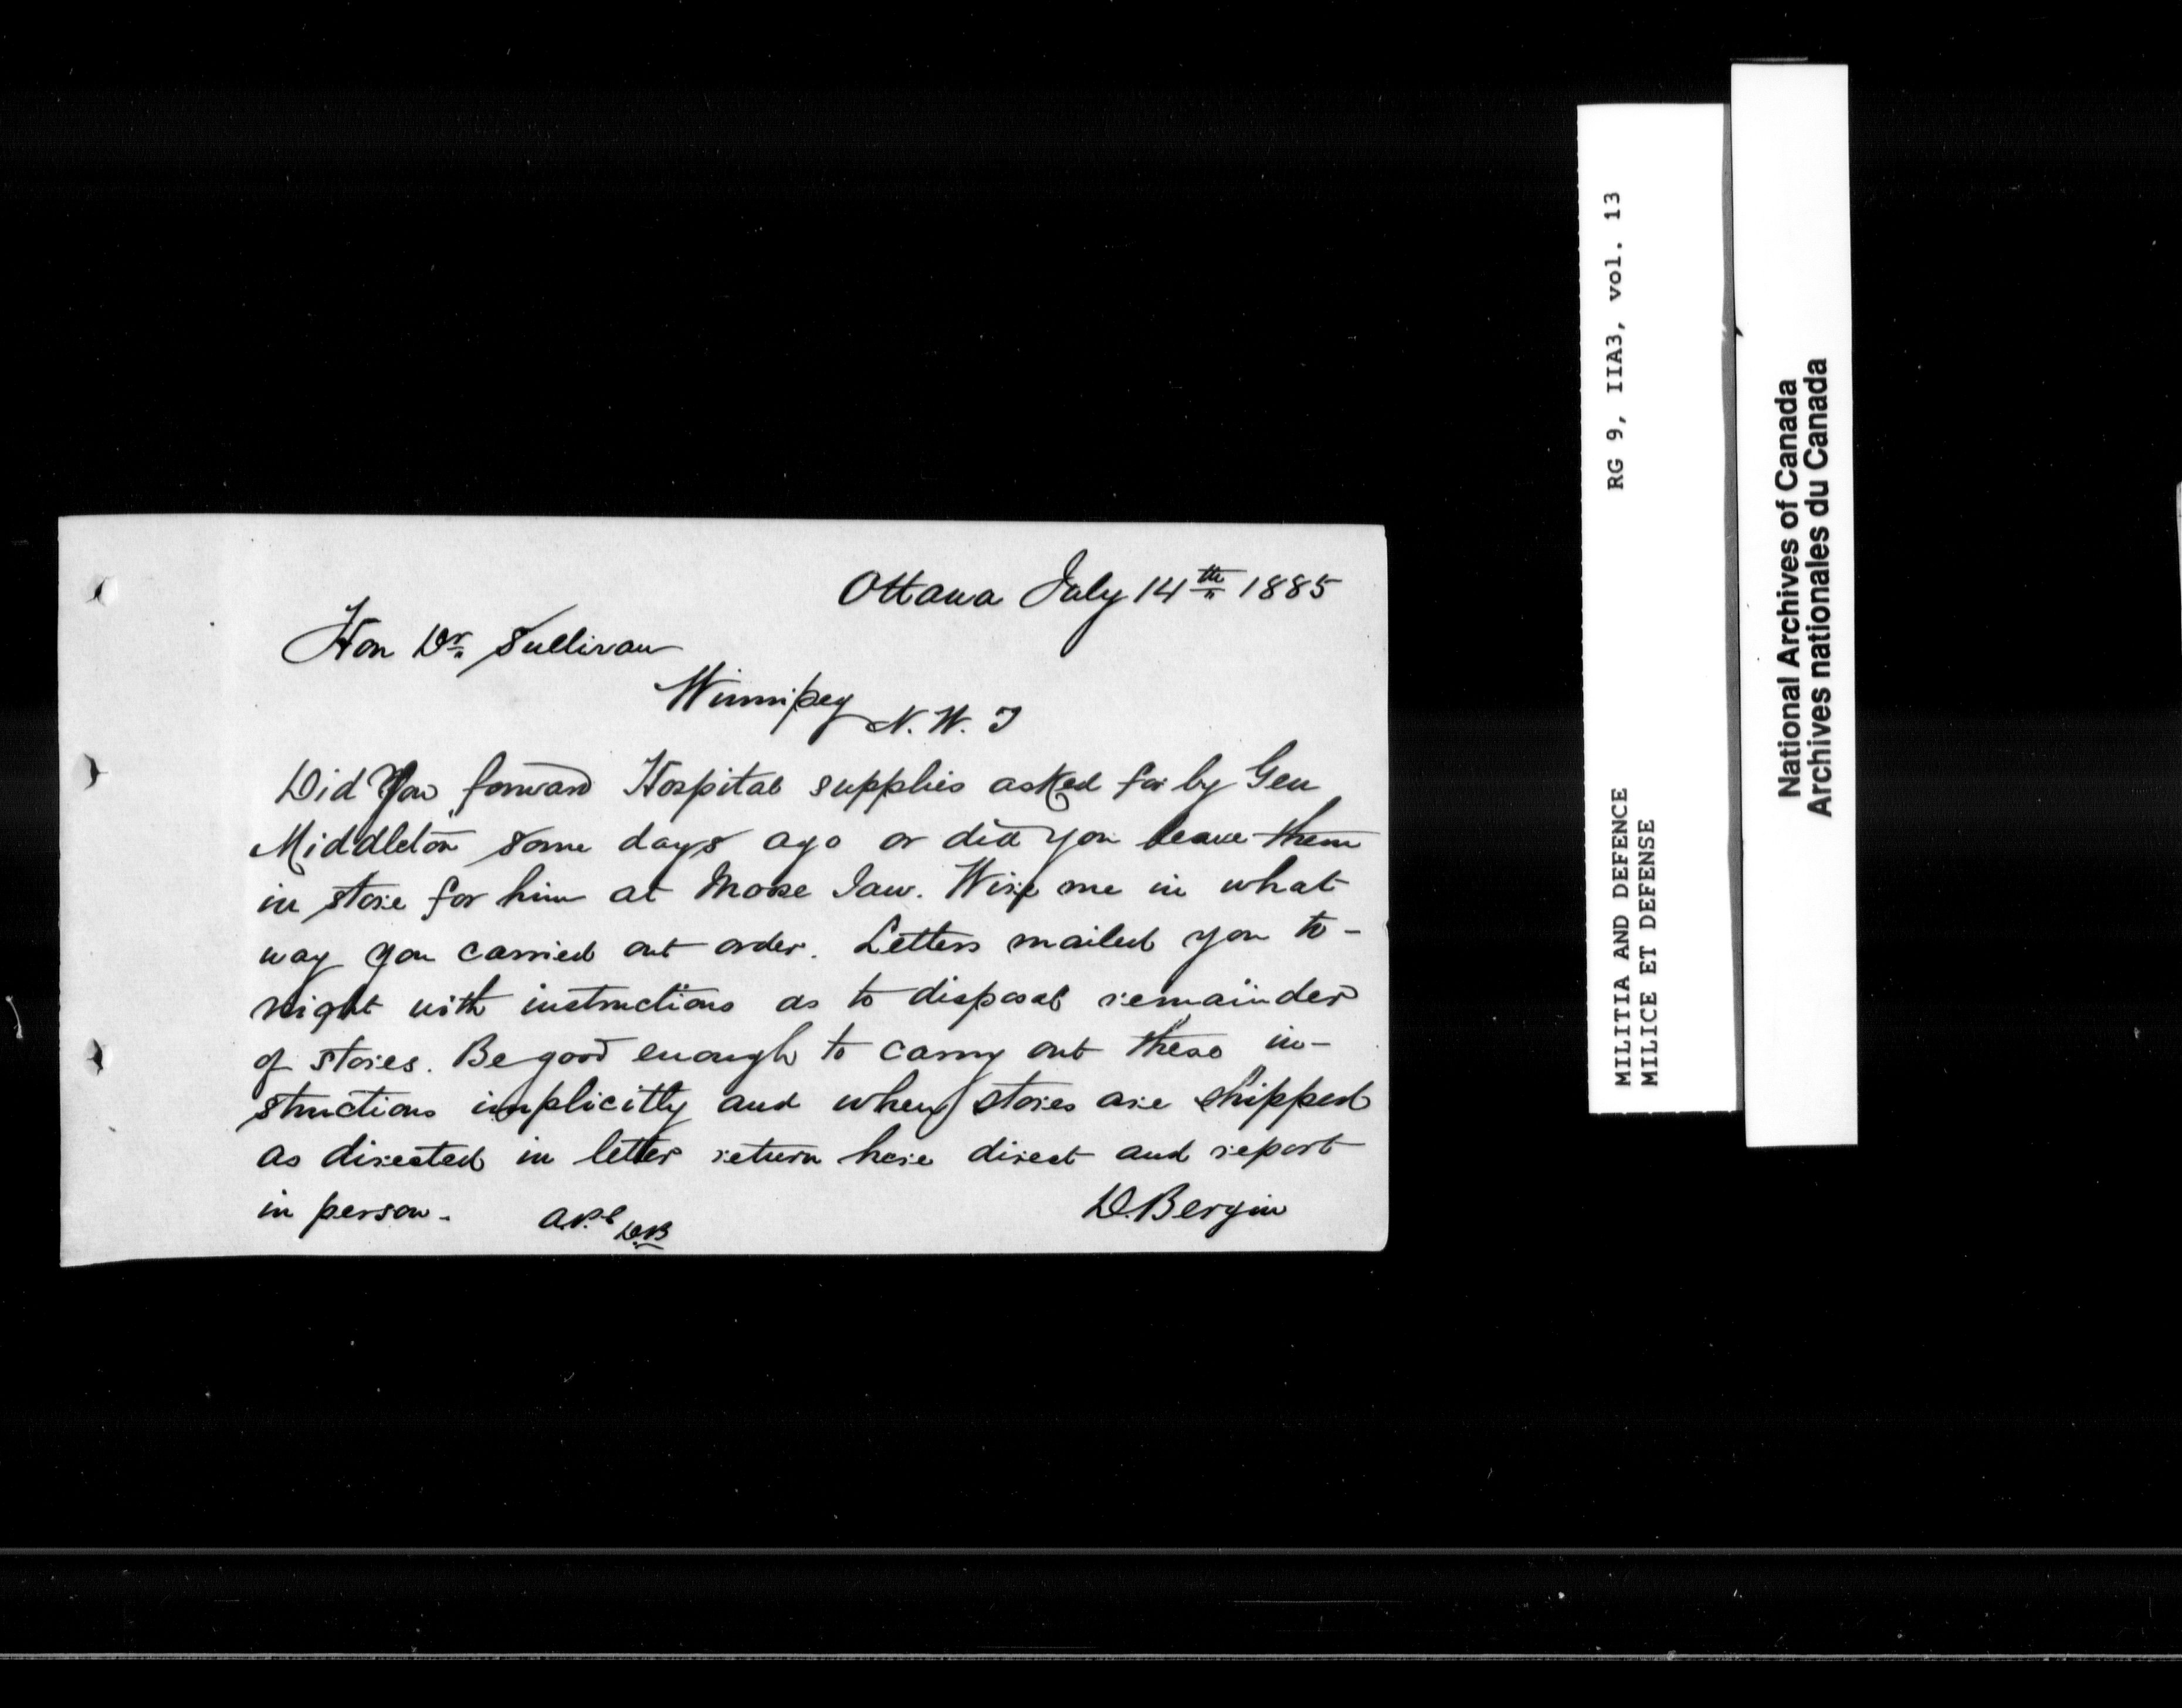 Ottawa July 14th 1885
Hon Dr. Sullivan
Winnipeg
N.W.T
Did You forward Hospital supplies asked for by Gen
Middleton some days ago or did you leave them
in store for him at Moose Jaw. Wire me in what
way you carried out order. Letters mailed you to-
night with instructions as to disposal remainder
of stores. Be good enough to carry out these in-
structions implicitly and when stores are shipped
as directed in letter return here direct and report
in person.
D. Bergin
DB
RG 9, IIA3, vol. 13
MILITIA AND DEFENCE
MILICE ET DEFENSE
National Archives of Canada
Archives nationales du Canada